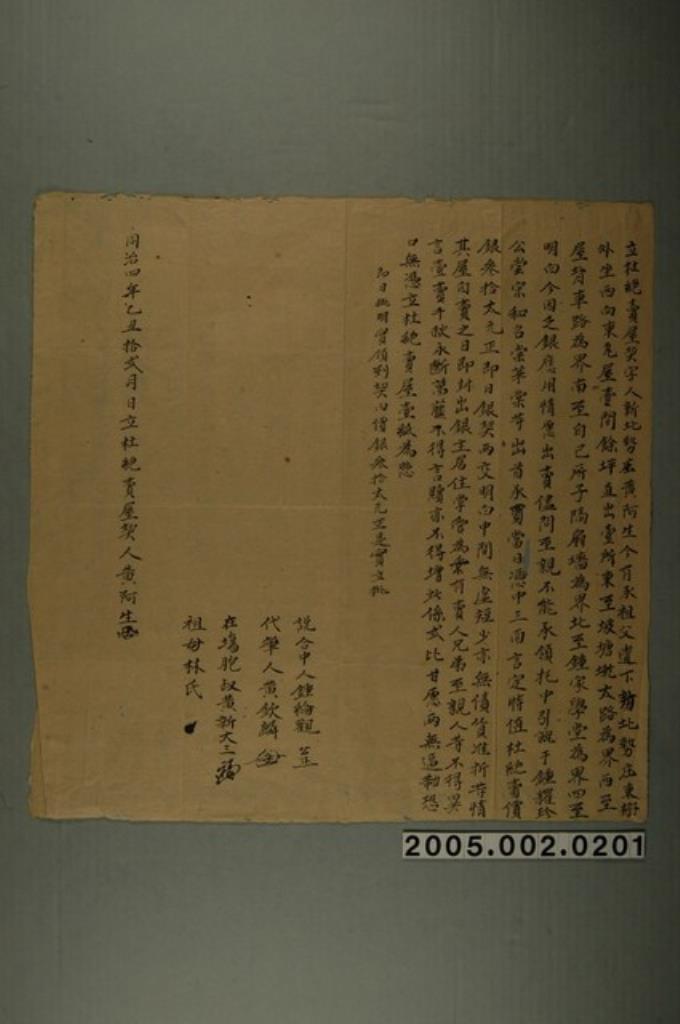 立杜絕賣屋契字人新北勢庄黃阿生今有承祖父遺下新北勢庄東柵
外坐西向東瓦屋壹間餘坪直出壹所東至坡塘墘大路為界西至
屋背車路為界南至自己所子隔廍墻為界北至鍾家學堂為界四至
明白今因乏銀應用情愿出賣儘問至親不能承領托中引就于鍾耀珍
公嘗宗和名崇華崇等出首承買當日憑中三面言定時值杜絕賣價
銀叁拾大元正即日銀契兩交明白中間無虛短少亦無債貨准折等情
其屋自賣之日即封出銀主居住掌管為業有賣人兄弟至親人等不得異
言壹賣千秋永斷葛藤不得言贖亦不得增此係式比甘愿兩無逼勒恐
口無憑立杜絕賣屋壹紙為憑
即日批明實領到契內價銀叁拾大元正是實立批
說合中人鍾綸觀
代筆人黃欽麟
在場胞叔黃新大三
祖母林氏
同治四年乙丑拾弍月日立杜絕賣屋契人黃阿生
2005.002.0201